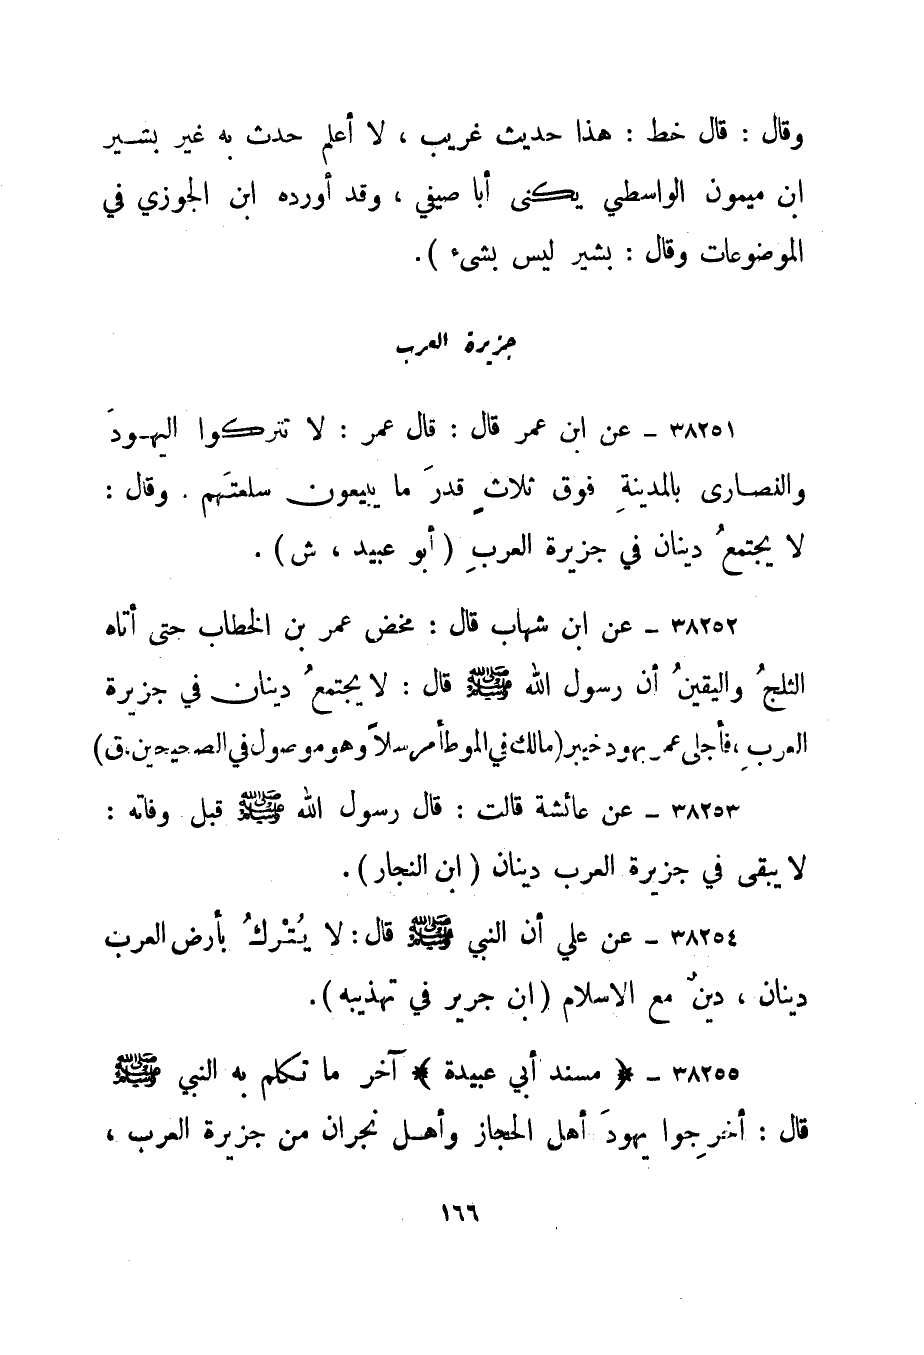 وقال : قال خط : هذا حديث غريب ، لا أعلم حدث به غير بشير
ابن ميمون الواسطي يكنى أبا صيفي ، وقد أورده ابن الجوزي في
الموضوعات وقال : بشير ليس بشىء ) .
جزيرة العرب
٣٨٢٥١ ــ عن ابن عمر قال : قال عمر : لا تتركوا اليهودَ
والنصارى بالمدينةِ فوق ثلاثٍ قدرَ ما يبيعون سلعتَهم . وقال :
لا يجتمعُ دينان في جزيرة العربِ ( أبو عبيد ، ش ) .
٣٨٢٥٢ ــ عن ابن شهاب قال : مخض عمر بن الخطاب حتى أتاه
الثلجُ واليقينُ أن رسول الله ﷺ قال : لا يجتمعُ دينان في جزيرة
العربِ ، فأجلى عمر يهود خيبر ( مالك في الموطأ مرسلاً وهو موصول في الصحيحين ، ق )
٣٨٢٥٣ ــ عن عائشة قالت : قال رسول الله ﷺ قبل وفاته :
لا يبقى في جزيرة العرب دينان ( ابن النجار ) .
٣٨٢٥٤ ــ عن علي أن النبي ﷺ قال : لا يُتْركُ بأرض العرب
دينان ، دينٌ مع الاسلام ( ابن جرير في تهذيبه ) .
٣٨٢٥٥ ــ ﴿ مسند أبي عبيدة ﴾ آخر ما تكلم به النبي ﷺ
قال : أخرِجوا يهودَ أهل الحجاز وأهل نجران من جزيرة العرب ،
١٦٦